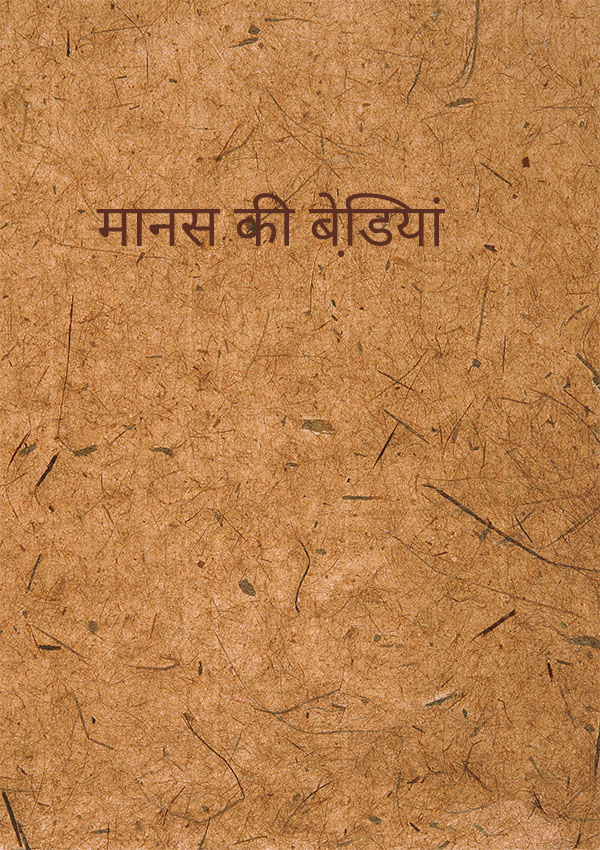 मानस की बेड़ियां